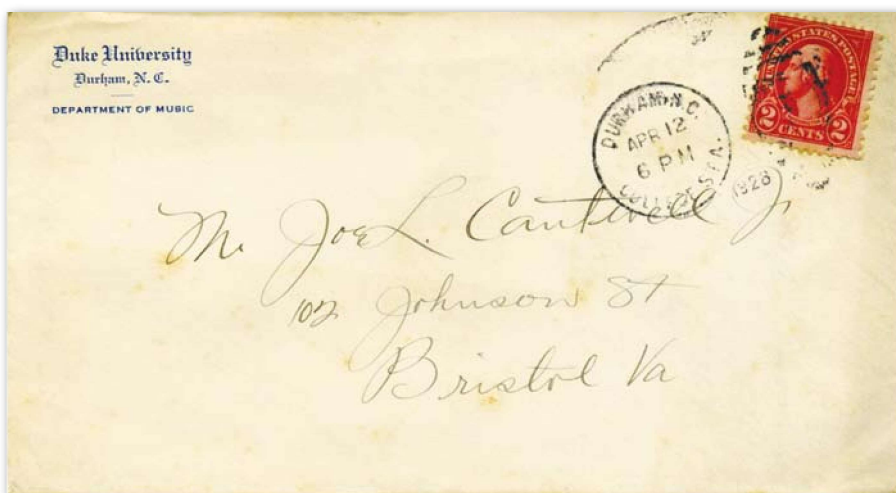 Duke University
Durham, N. C.
DEPARTMENT OF MUSIC
DURHAM, N.C.
APR 12
6 PM
COLLEGE STA.
1928
UNITED STATES POSTAGE
2 CENTS 2
Mr. Joe L. Cantwell Jr
102 Johnson St
Bristol Va